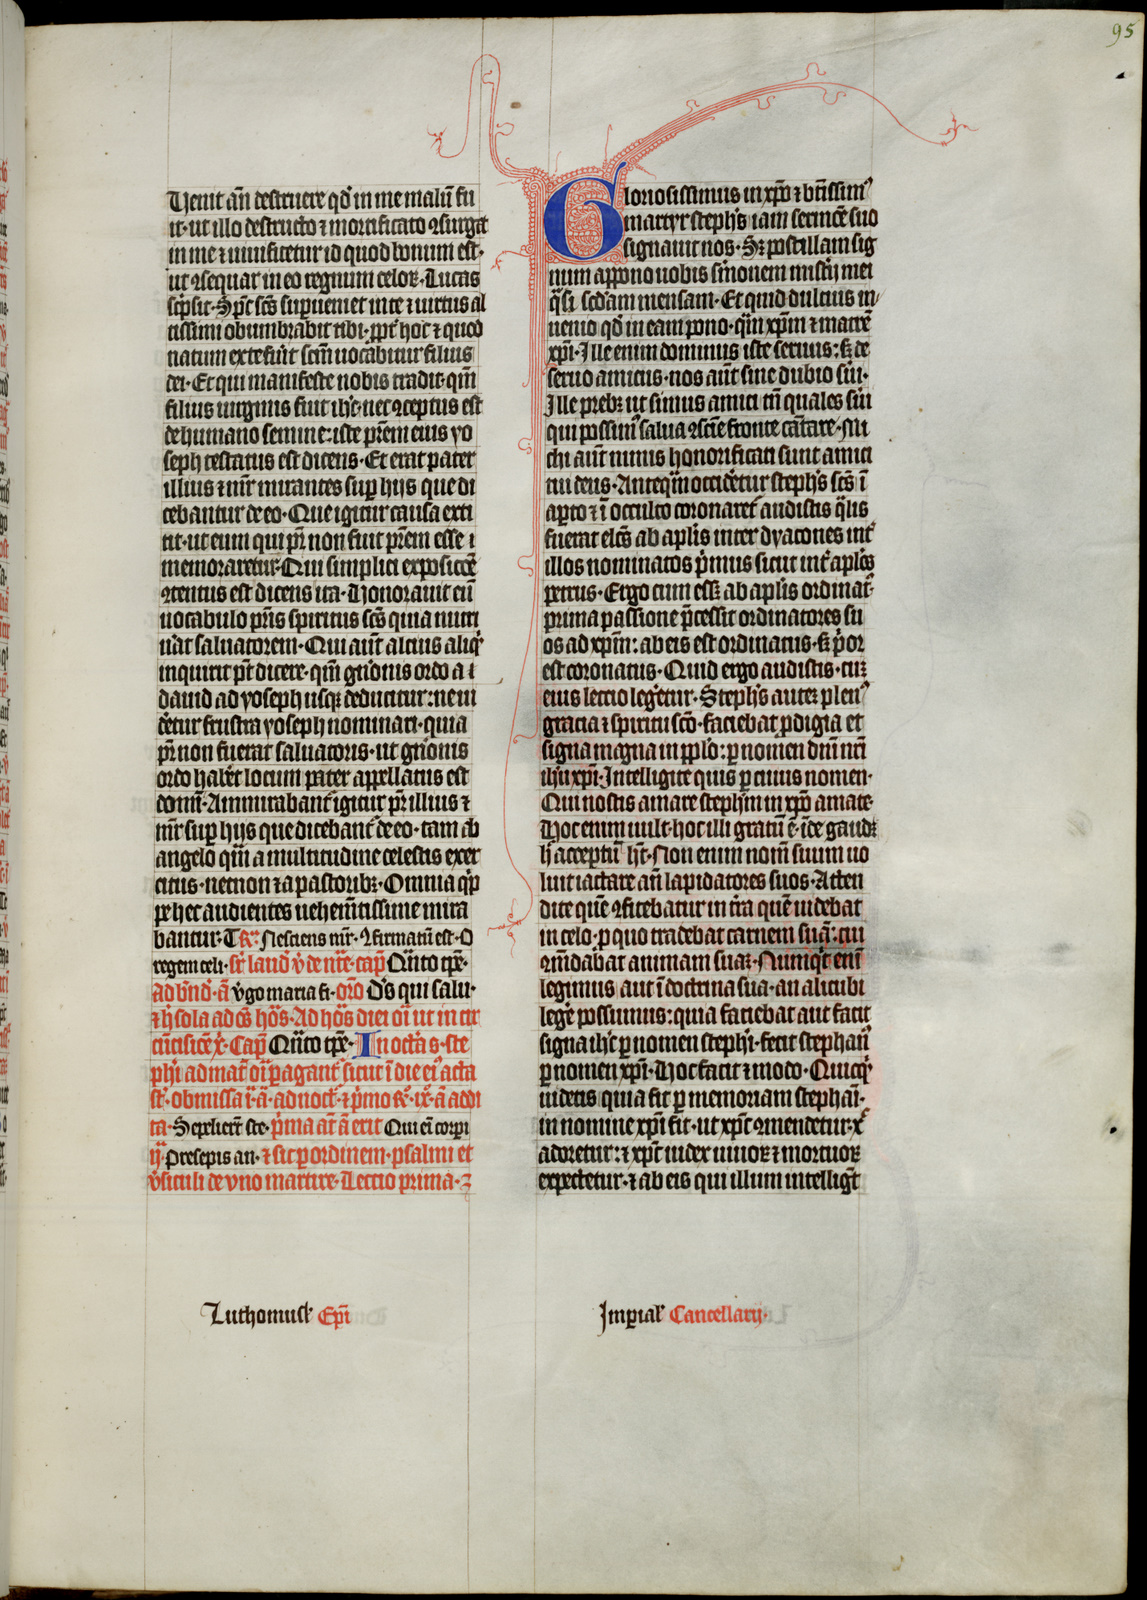 95
Iheuit an̄ destruere qd̓ in me malū fu
it· ut illo destructo ⁊ mortificato ꝯsurgat
in me ⁊ uiuificetur id quod bonum est·
ut ꝯsequar in eo regnum celoꝝ· Lucas
sc̓psit· Sp̄c sc̄s superueniet in te ⁊ uirtus al
tissimi obumbrabit tibi· ꝓpt̓ hoc ⁊ quod
natum ex te fūit sc̄m uocabitur filius
dei· Et qui manifeste nobis tradit· qm̄
filius uirginis fuit ih̄c· nec ꝯceptus est
de humano semine: iste pr̄em eius yo
seph testatus est dicens· Et erat pater
illius ⁊ mr̄ mirantes suꝑ hijs que di
cebantur de eo· Que igitur causa exti
tit· ut eum qui pr̄ non fuit pr̄em esse
memoraretur· Qui simplici exposicōe
ꝯtentus est dicens ita· Honorauit eū
uocabulo pr̄is spiritus sc̄s quia nutri
ūat saluatorem· Qui aūt alcius aliq̓
inquirit pt̄ dicere· qm̄ gn̄onis ordo a
dauid ad yoseph usqꝫ deducitur: ne ui
d̓etur frustra yoseph nominari· quia
pr̄ non fuerat saluatoris· ut gn̄onis
ordo haber̄t locum pater appellatus est
domī· Ammirabant̓ igitur pr̄ illius ⁊
mr̄ suꝑ hijs que dicebant̓ de eo· tam ab
angelo qm̄ a multitudine celestis exer
citus· necnon ⁊ a pastoribꝫ· Omnia q̓ꝑ
pe hec audientes uehem̄tissime mira
bantur· T R̄· Nesciens mr̄· ꝯfirmatū est· O
regem celi· sr̄ laud̓ ꝟ de nr̄e· cap̄ Qn̄to tp̄e·
ad bn̄d̓· ā ꝟgo maria fi· or̄o Ds̄ qui salu·
⁊ h̓ sola ad oc̄s hōs· Ad hōs diei oī ut in cir
cūcisicōe x̄· Cap̄ Qn̄to tp̄e· In octa s· ste
phī ad mat̄ oīa ꝑagant̓ sicut ī die ei᷒ acta
st̄· obmissa ī· ā· ad noct̓· ⁊ p̓mo R̄· ix· ā addi
ta· Sepelier̄t ste· p̓ma āt ā erit Qui ei corpi
ij· Presepis an· ⁊ sic ꝑ ordinem· psalmi et
ꝟsiculi de vno martire· Lectio prima·
Gloriosissimus in xp̄o ⁊ btissim᷒
martyr steph̄s iam sermōe suo
signauit nos· Sꝫ post illam sig
num appono uobis sm̄onem mistij mei
q̓si sc̄dam mensam· Et quid dulcius in/
uenio qd̓ in eam pono· qm̄ xp̄m ⁊ matrē
xp̄i· Ille enim dominus iste seruus: sꝫ de
seruo amicus· nos aūt sine dubio sūi·
Ille prebꝫ ut simus amici tn̄ quales sūi
qui possim᷒ salua ꝯscīe fronte cātare· Mi
chi aūt nimis honorificati sunt amici
tui deus· Anteq̄m occidetur steph̄s sc̄s ī
aꝑto ⁊ ī occulto coronaret̓ audistis q̄lis
fuerat elc̄s ab ap̄lis inter dyacones int̓
illos nominatos p̓mus sicut int̓ ap̄los
petrus· Ergo cum eēꝫ ab ap̄lis ordinat᷒·
prima passione p̄cessit ordinatores su
os ad xp̄m: ab eis est ordinatus· sꝫ p̓or
est coronatus· Quid ergo audistis· cuꝫ
eius lectio leget̓ur· Steph̄s autēꝫ plen᷒
gracia ⁊ spiritu sc̄o· faciebat ꝓdigia et
signa magna in pp̄lo: ꝑ nomen dn̄i nr̄i
ih̄u xp̄i· Intelligite quis ꝑ cuius nomen·
Qui nostis amare steph̄m in xp̄o amate·
Hoc enim uult· hoc illi gratū ē· īde gaudꝫ
h̓ acceptū ht̄· Non enim nom̄ suum uo
luit iactare añ lapidatores suos· Atten
dite quē ꝯfitebatur in t̄ra quē uidebat
in celo· ꝑ quo tradebat carnem suā: cui
ꝯmēdabat animam suaꝫ· Nunq̓d enī
legimus aut ī doctrina sua· an alicubi
lege̓ possumus: quia faciebat aut facit
signa ih̄c ꝑ nomen steph̄i· fecit stephan᷒
ꝑ nomen xp̄i· Hoc facit ⁊ modo· Quicq̓
uidetis quia fit ꝑ memoriam stephāi·
in nomine xp̄i fit· ut xp̄c ꝯmendetur· x̄
adoretur: ⁊ xp̄c iudex uiuoꝝ ⁊ mortuoꝝ
expectetur· ⁊ ab eis qui illum intelligt̄
Luthomusl̓ Ep̄i
Imꝑial̓ Cancellarij·